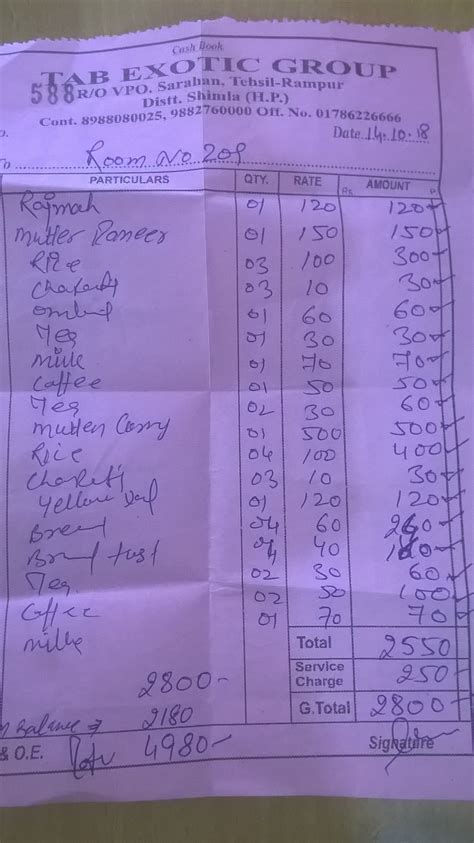 Cash Book
TAB EXOTIC GROUP
588 R/O VPO. Sarahan, Tehsil-Rampur
Distt. Shimla (H.P.)
Cont. 8988080025, 9882760000 Off. No. 01786226666
Date 14.10.18
To Room No 209
PARTICULARS QTY. RATE Rs. AMOUNT P.
Rajmah 01 120 120
Mutter Paneer 01 150 150
Rice 03 100 300
03 10 30
01 60 60
Tea 01 30 30
Milk 01 70 70
Coffee 01 50 50
Tea 02 30 60
Mutten Curry 01 500 500
Rice 04 100 400
03 10 30
Yellow Dal 01 120 120
Bread 04 60
Bread 04 40
Tea 02 30 60
Coffee 02 50 100
Milk 01 70 70
Total 2550
Service Charge 250
2800- G.Total 2800
Balance → 2180
& O.E. 4980- Signature